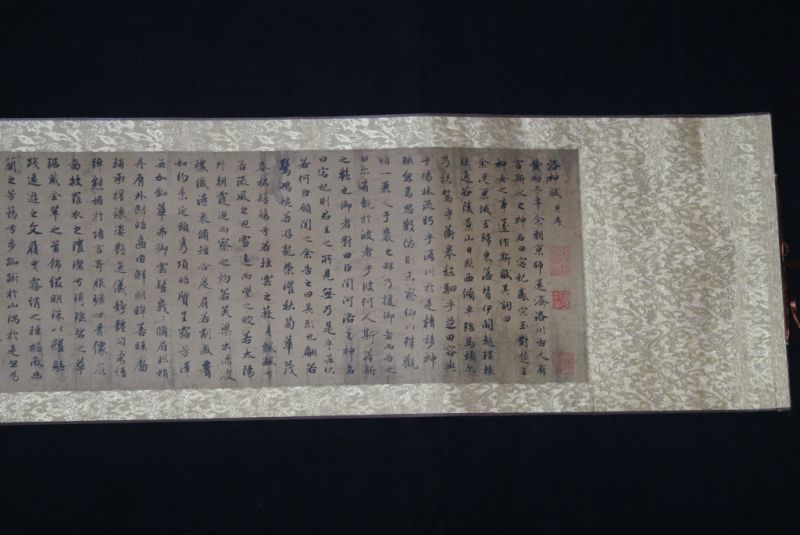 洛神賦 并序
黄初三年余朝京師還濟洛川古人有
言斯水之神名曰宓妃感宋玉對楚王
神女之事遂作斯賦其詞曰
余從京域言歸東藩背伊闕越轘轅
經通谷陵景山日既西傾車殆馬煩爾
乃税駕乎蘅皋秣駟乎芝田容與
乎楊林流眄乎洛川於是精移神
駭忽焉思散俯則未察仰以殊觀
睹一麗人于巖之畔乃援御者而告之
曰爾有覿於彼者乎彼何人斯若斯
之艷也御者對曰臣聞河洛之神名
曰宓妃則君王之所見無乃是乎其狀
若何臣願聞之余告之曰其形也翩若
驚鴻婉若游龍榮曜秋菊華茂
春松髣髴兮若輕雲之蔽月飄颻兮
若流風之迴雪遠而望之皎若太陽
升朝霞迫而察之灼若芙蕖出淥波
穠纖得衷脩短合度肩若削成腰
如約素延頸秀項皓質呈露芳澤
無加鉛華弗御雲髻峨峨脩眉聯娟
丹脣外朗皓齒内鮮明眸善睞靨
輔承權瓌姿艷逸儀静體閑柔情
綽態媚於語言奇服曠世骨像應
圖披羅衣之璀璨兮珥瑤碧之華
琚戴金翠之首飾綴明珠以耀軀
踐遠遊之文履曳霧綃之輕裾微幽
蘭之芳藹兮步踟躕於山隅於是忽焉